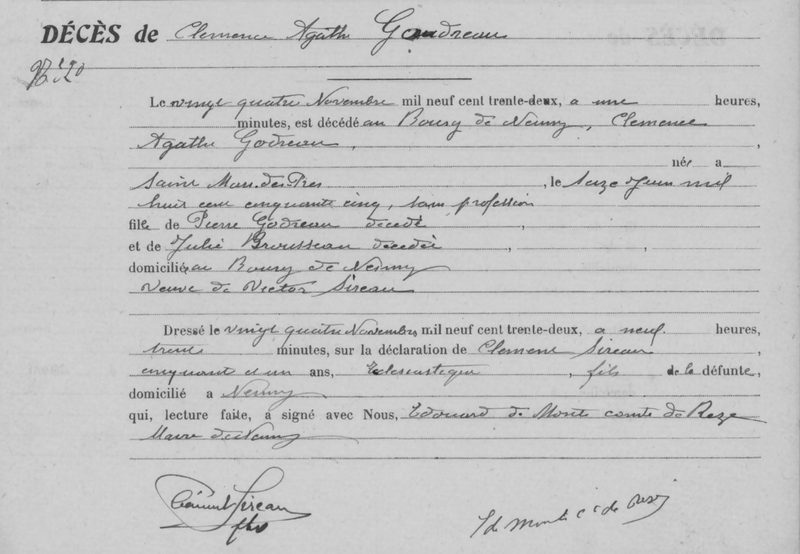 DÉCÈS de Clemence Agathe Goudreau
N° 20
Le vingt quatre Novembre mil neuf cent trente-deux, a une heures,
minutes, est décédé au Bourg de Nesmy, Clemence
Agathe Godreau,
née a
Saint Mars des Prés, le Seize Juin mil
huit cent cinquante cinq, sans profession
fille de Pierre Godreau décédé,
et de Julie Brousseau décédée,
domicilié au Bourg de Nesmy
veuve de Victor Sireau
Dressé le vingt quatre Novembre mil neuf cent trente-deux, a neuf heures,
trente minutes, sur la déclaration de Clement Sireau,
cinquante et un ans, Eclesiastique, fils de la défunte,
domicilié a Nesmy
qui, lecture faite, a signé avec Nous, Edouard de Monti comte de Reze
Maire de Nesmy
Clément Sireau
E de Monti cte de Rezé